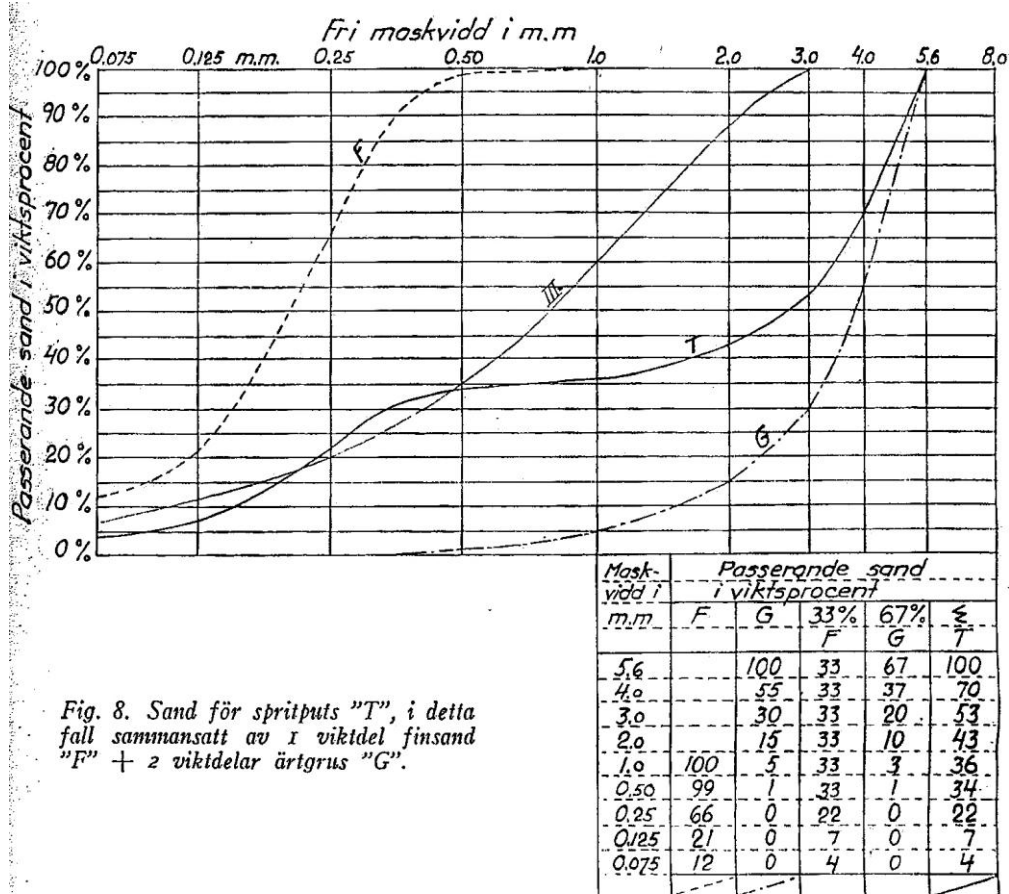 Fri maskvidd i m.m
0,075 0,125 m.m. 0,25 0,50 1,0 2,0 3,0 4,0 5,6 8,0
Passerande sand i viktsprocent
100%
90%
80%
70%
60%
50%
40%
30%
20%
10%
0%
F
III.
T
G
Mask- Passerande sand
vidd i i viktsprocent
m.m F G 33% 67% Σ
F G T
5,6 100 33 67 100
4,0 55 33 37 70
3,0 30 33 20 53
2,0 15 33 10 43
1,0 100 5 33 3 36
0,50 99 1 33 1 34
0,25 66 0 22 0 22
0,125 21 0 7 0 7
0,075 12 0 4 0 4
Fig. 8. Sand för spritputs "T", i detta
fall sammansatt av 1 viktdel finsand
"F" + 2 viktdelar ärtgrus "G".